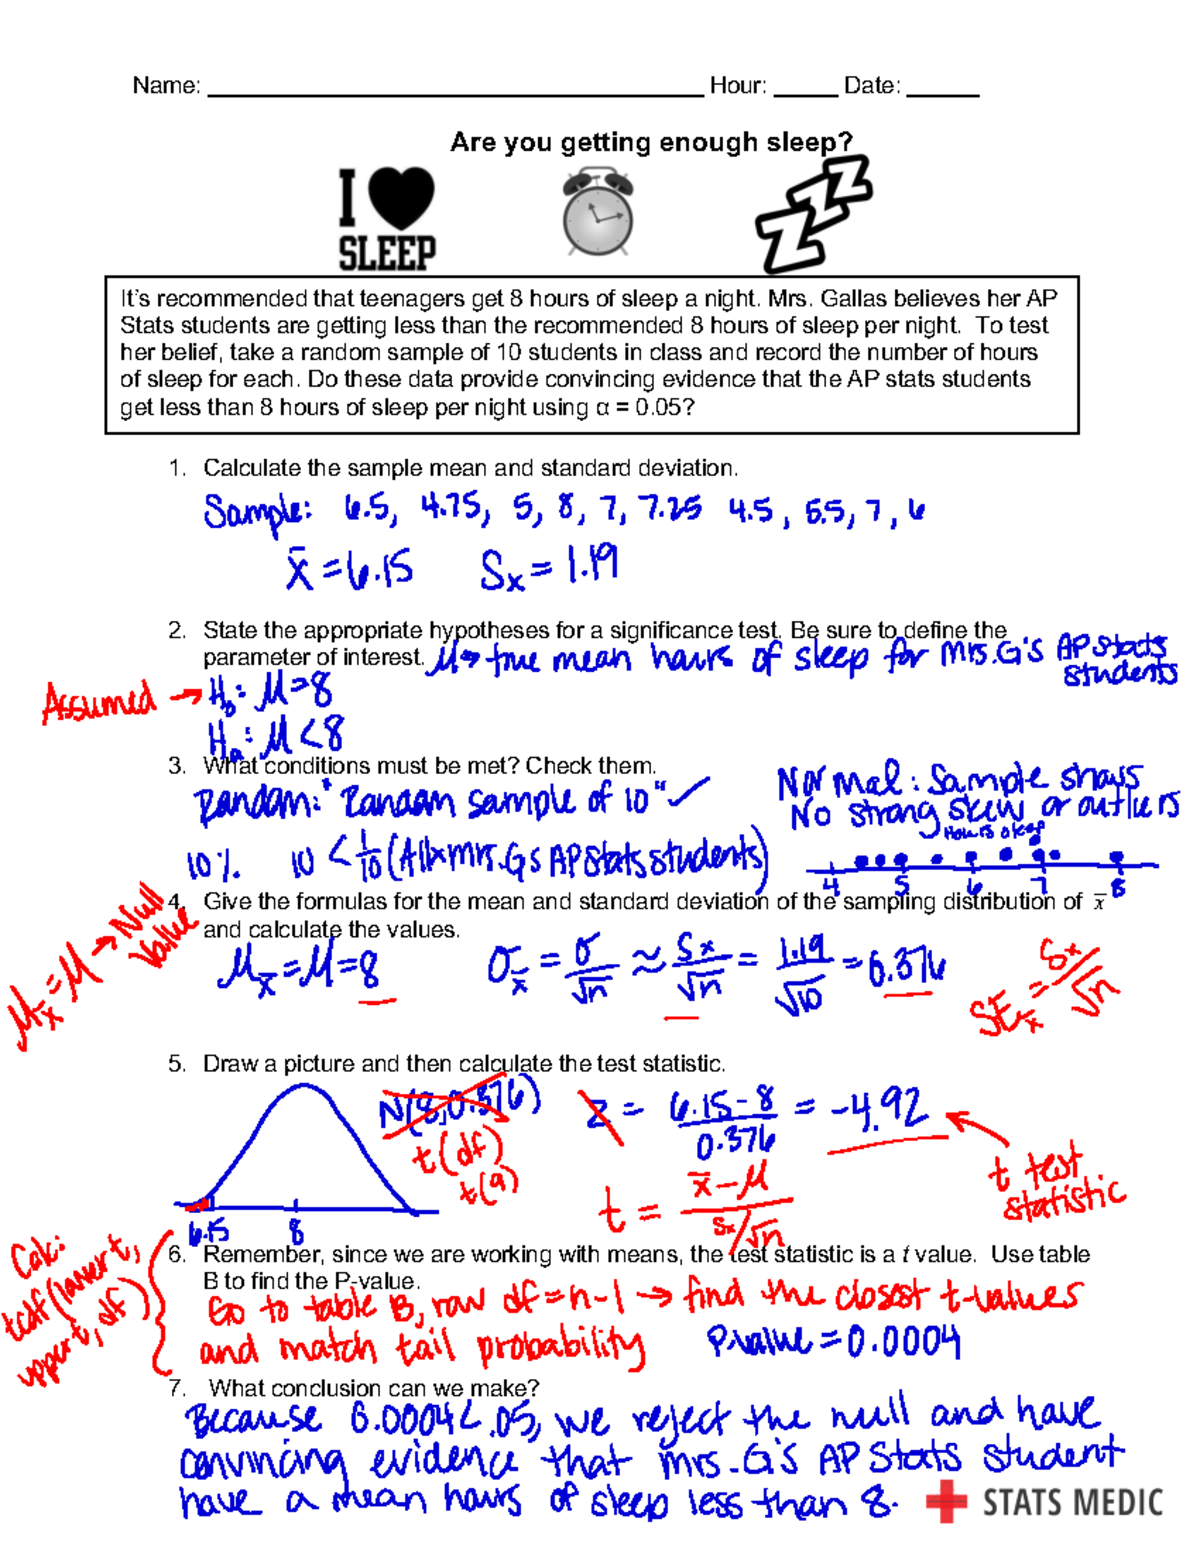 Name: ____ Hour: ____ Date: ____
Are you getting enough sleep?
I ♥
SLEEP
ZZZ
It's recommended that teenagers get 8 hours of sleep a night. Mrs. Gallas believes her AP
Stats students are getting less than the recommended 8 hours of sleep per night. To test
her belief, take a random sample of 10 students in class and record the number of hours
of sleep for each. Do these data provide convincing evidence that the AP stats students
get less than 8 hours of sleep per night using α = 0.05?
1. Calculate the sample mean and standard deviation.
Sample: 6.5, 4.75, 5, 8, 7, 7.25 4.5, 5.5, 7, 6
x̄ = 6.15 Sx = 1.19
2. State the appropriate hypotheses for a significance test. Be sure to define the
parameter of interest. μ → true mean hours of sleep for Mrs. G's AP Stats
students
Assumed → H₀: μ = 8
Hₐ: μ < 8
3. What conditions must be met? Check them.
Random: "Random sample of 10" ✓
Normal: Sample shows
No strong skew or outliers
Hours sleep
4 5 6 7 8
10% 10 < 1/10 (All Mrs. G's AP Stats students)
4. Give the formulas for the mean and standard deviation of the sampling distribution of x̄
and calculate the values.
μx̄ = μ → Null
Value
μx̄ = μ = 8 σx̄ = σ/√n ≈ Sx/√n = 1.19/√10 = 0.376
SEx̄ = Sx/√n
5. Draw a picture and then calculate the test statistic.
N(8, 0.376)
t(df)
t(9)
6.15 8
z = (6.15 - 8)/0.376 = -4.92
t test
statistic
t = (x̄ - μ)/(Sx/√n)
6. Remember, since we are working with means, the test statistic is a t value. Use table
B to find the P-value.
Calc:
tcdf(lower t,
upper t, df)
Go to table B, row df = n-1 → find the closest t-values
and match tail probability P-value = 0.0004
7. What conclusion can we make?
Because 0.0004 < .05, we reject the null and have
convincing evidence that Mrs. G's AP Stats student
have a mean hours of sleep less than 8.
STATS MEDIC